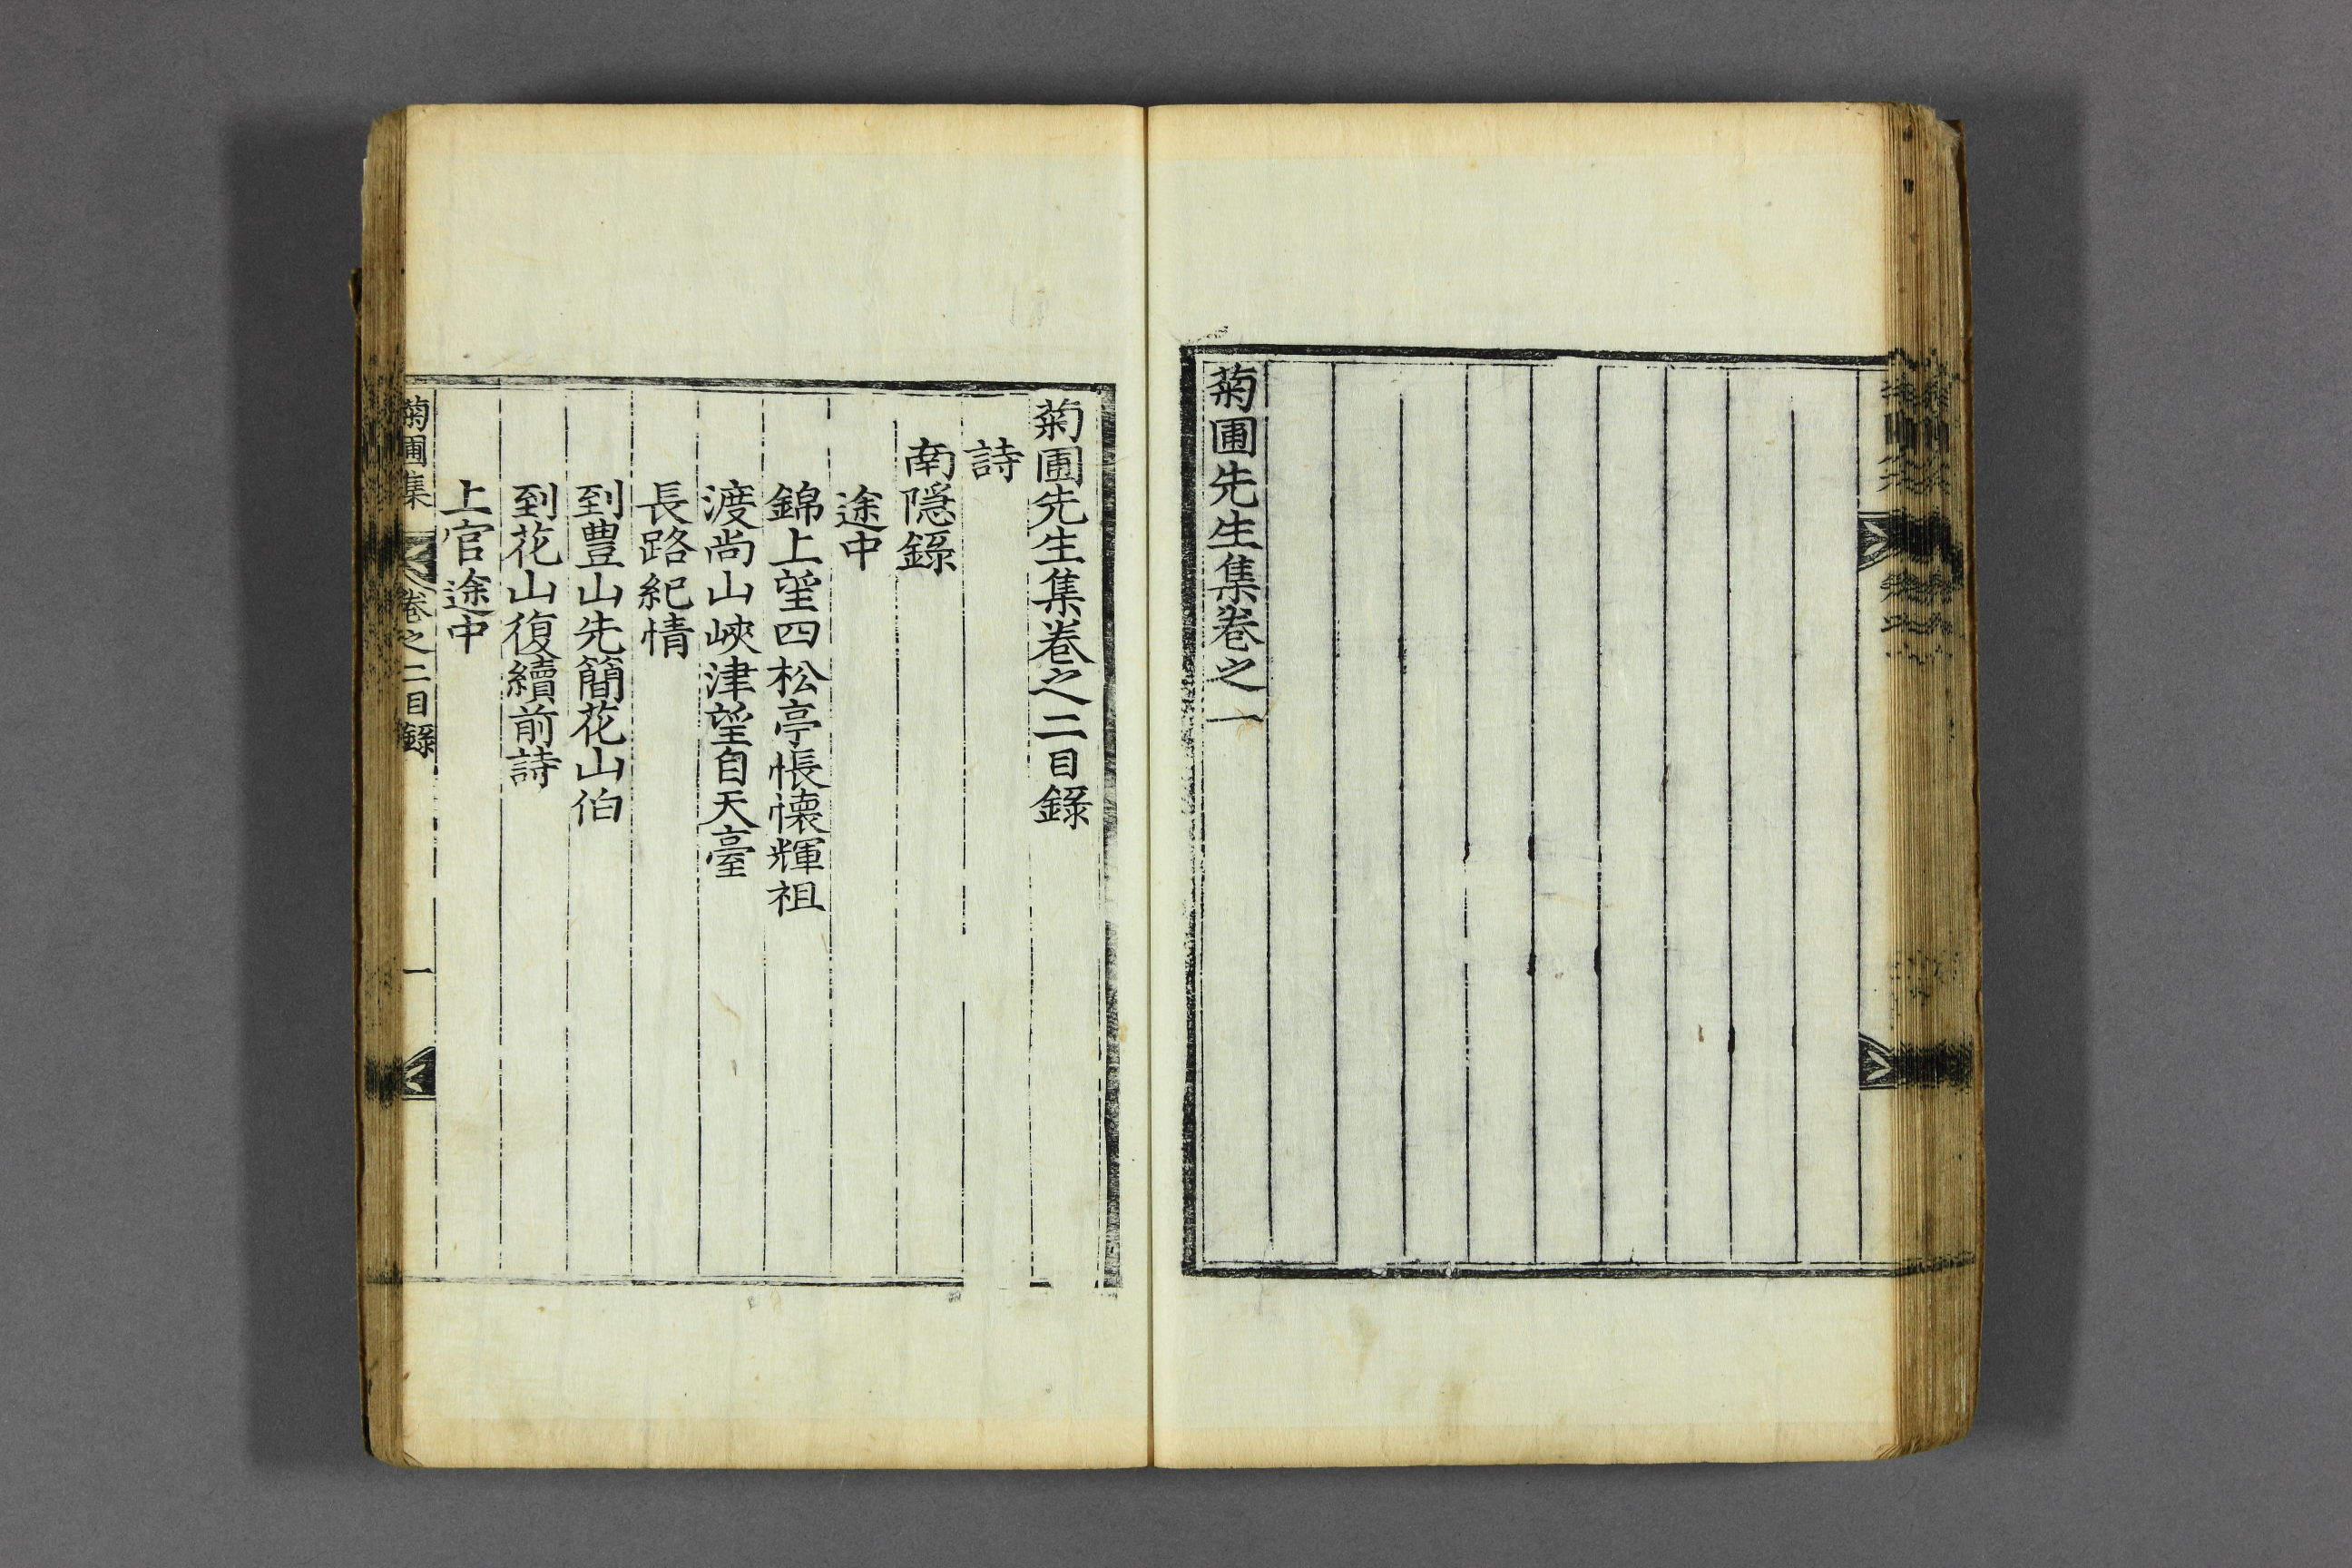 菊圃先生集卷之一
菊圃先生集卷之二目錄
詩
南隱錄
途中
錦上望四松亭悵懷輝祖
渡尚山峽津望自天臺
長路紀情
到豊山先簡花山伯
到花山復續前詩
上官途中
菊圃集 卷之二目錄 一